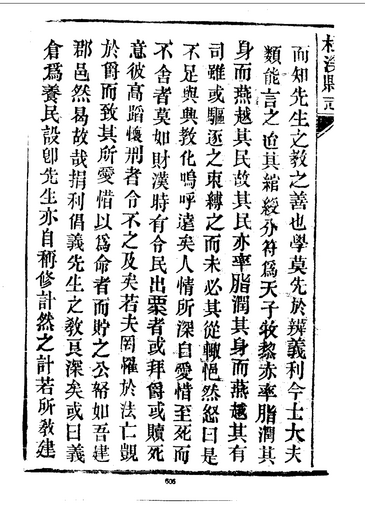 縣志
而知先生之教之善也學莫先於辨義利今士大夫
類能言之迨其綰綬分符爲天子牧黎赤率脂潤其
身而燕越其民故其民亦率脂潤其身而燕越其有
司雖或驅逐之束縛之而未必其從輒悒然怒曰是
不足與興教化嗚呼遠矣人情所深自愛惜至死而
不舍者莫如財漢時有令民出粟者或拜爵或贖死
意彼高蹈懷刑者令不之及矣若夫罔罹於法亡覬
於爵而致其所愛惜以爲命者而貯之公帑如吾建
郡邑然易故哉捐利倡義先生之教良深矣或曰義
倉爲養民設卽先生亦自稱修計然之計若所敎建
606